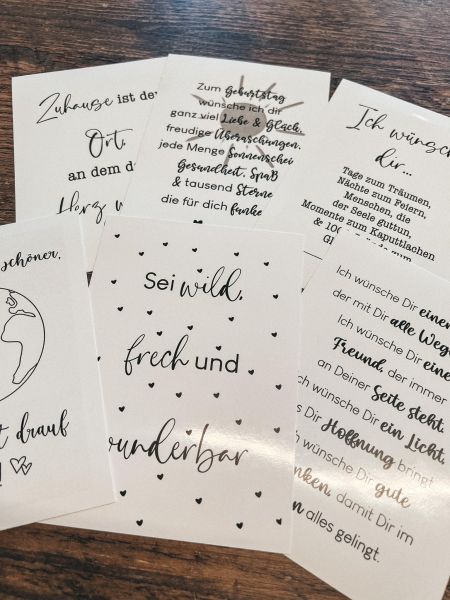 Zuhause ist der
Ort,
an dem d
Herz w
Zum Geburtstag
wünsche ich dir
ganz viel Liebe & Glück,
freudige Überraschungen,
jede Menge Sonnenschei
Gesundheit, Spaß
& tausend Sterne
die für dich funke
Ich wünsch
dir...
Tage zum Träumen,
Nächte zum Feiern,
Menschen, die
der Seele guttun,
Momente zum Kaputtlachen
& 100
schöner,
t drauf
!
Sei wild,
frech und
wunderbar
Ich wünsche Dir einen
der mit Dir alle Wege
Ich wünsche Dir eine
Freund, der immer
an Deiner Seite steht.
ch wünsche Dir ein Licht,
s Dir Hoffnung bringt
h wünsche Dir gute
nken, damit Dir im
n alles gelingt.